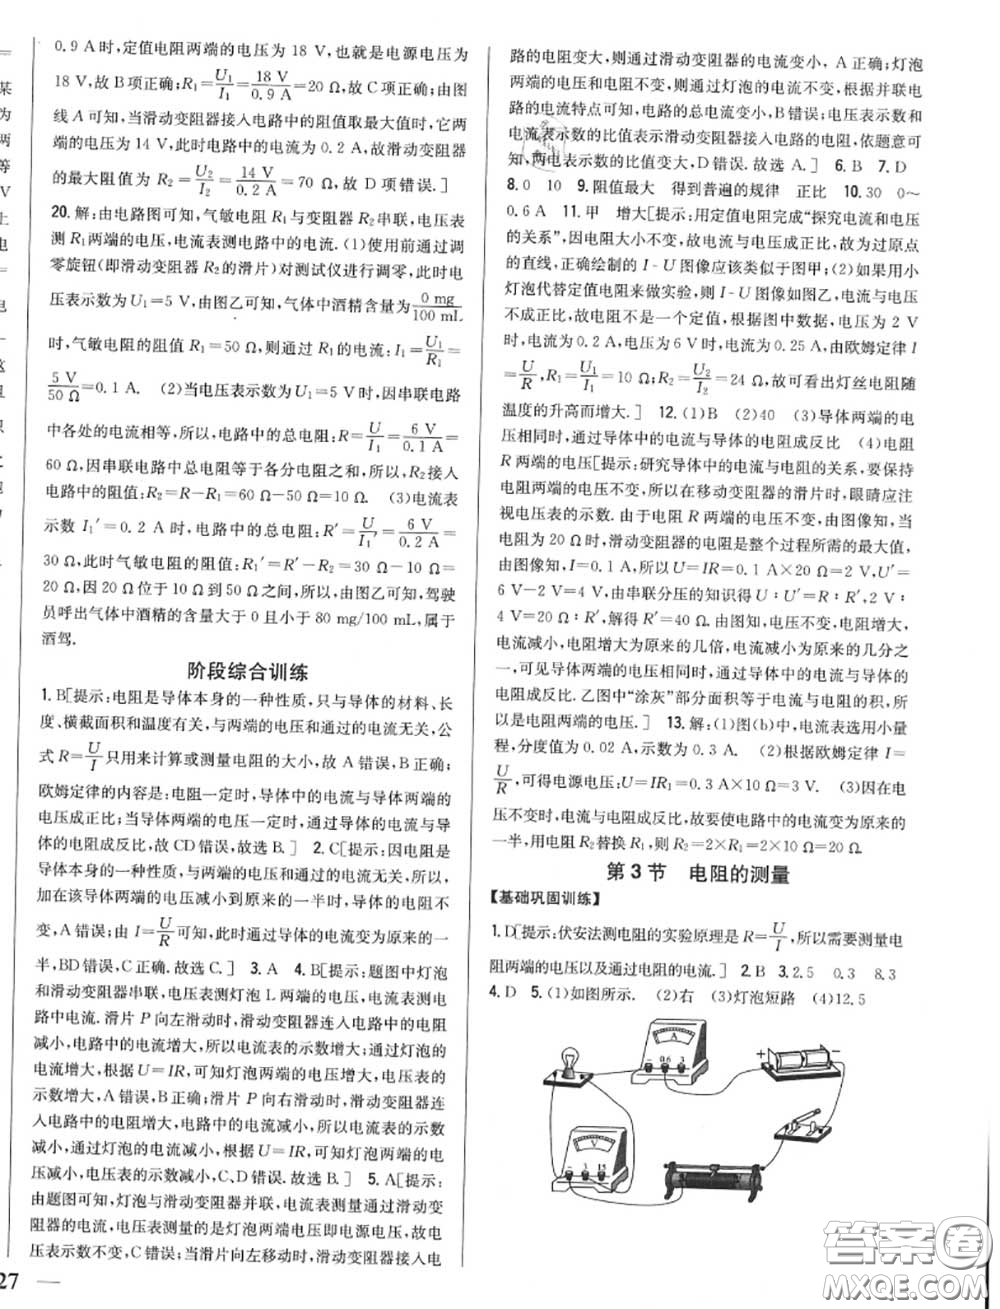 0.9 A时,定值电阻两端的电压为 18 V,也就是电源电压为
18 V,故 B项正确;R₁=U₁/I₁=18 V/0.9 A=20 Ω,故 C 项正确;由图
线 A 可知,当滑动变阻器接入电路中的阻值取最大值时,它两
端的电压为 14 V,此时电路中的电流为 0.2 A,故滑动变阻器
的最大阻值为 R₂=U₂/I₂=14 V/0.2 A=70 Ω,故 D 项错误.]
20.解:由电路图可知,气敏电阻 R₁与变阻器 R₂串联,电压表
测 R₁两端的电压,电流表测电路中的电流.(1)使用前通过调
零旋钮(即滑动变阻器 R₂的滑片)对测试仪进行调零,此时电
压表示数为 U₁=5 V,由图乙可知,气体中酒精含量为 0 mg/100 mL
时,气敏电阻的阻值 R₁=50 Ω,则通过 R₁的电流:I₁=U₁/R₁=
5 V/50 Ω=0.1 A. (2)当电压表示数为U₁=5 V时,因串联电路
中各处的电流相等,所以,电路中的总电阻:R=U/I₁=6 V/0.1 A=
60 Ω,因串联电路中总电阻等于各分电阻之和,所以,R₂接入
电路中的阻值:R₂=R-R₁=60 Ω-50 Ω=10 Ω. (3)电流表
示数 I₁′=0.2 A时,电路中的总电阻:R′=U/I₁′=6 V/0.2 A=
30 Ω,此时气敏电阻的阻值:R₁′=R′-R₂=30 Ω-10 Ω=
20 Ω,因 20 Ω位于 10 Ω到50 Ω之间,所以,由图乙可知,驾驶
员呼出气体中酒精的含量大于 0 且小于 80 mg/100 mL,属于
酒驾.
阶段综合训练
1.B[提示:电阻是导体本身的一种性质,只与导体的材料、长
度、横截面积和温度有关,与两端的电压和通过的电流无关,公
式 R=U/I 只用来计算或测量电阻的大小,故 A 错误,B 正确;
欧姆定律的内容是:电阻一定时,导体中的电流与导体两端的
电压成正比;当导体两端的电压一定时,通过导体的电流与导
体的电阻成反比,故 CD 错误.故选 B.] 2.C[提示:因电阻是
导体本身的一种性质,与两端的电压和通过的电流无关,所以,
加在某导体两端的电压减小到原来的一半时,导体的电阻不
变,A 错误;由 I=U/R可知,此时通过导体的电流变为原来的一
半,BD错误,C正确.故选 C.] 3.A 4.B[提示:题图中灯泡
和滑动变阻器串联,电压表测灯泡 L 两端的电压,电流表测电
路中电流.滑片 P 向左滑动时,滑动变阻器连入电路中的电阻
减小,电路中的电流增大,所以电流表的示数增大;通过灯泡的
电流增大,根据 U=IR,可知灯泡的电压增大,电压表的
示数增大,A错误;B正确;滑片 P 向右滑动时,滑动变阻器连
入电路中的电阻增大,电路中的电流减小,所以电流表的示数
减小,通过灯泡的电流减小,根据 U=IR,可知灯泡两端的电
压减小,电压表的示数减小,C、D 错误;故选 B.] 5.A[提示:
由题图可知,灯泡与滑动变阻器并联,电流表测量通过滑动变
阻器的电流,电压表测量的是灯泡两端电压即电源电压,故电
压表示数不变,C 错误;当滑片向左滑动时,滑动变阻器接入电
27
路的电阻变大,则通过滑动变阻器的电流变小、A正确;灯泡
两端的电压和电阻不变,则通过灯泡的电流不变,根据并联电
路的电流特点可知,电路的总电流变小,B错误;电压表示数和
电流表示数的比值表示滑动变阻器接入电路的电阻,依题意可
知,两电表示数的比值变大,D 错误.故选 A.] 6.B 7.D
8.0 10 9.阻值最大 得到普遍的规律 正比 10.30 0~
0.6 A 11.甲 增大[提示:用定值电阻完成“探究电流和电压
的关系”,因电阻大小不变,故电流与电压成正比,故为过原点
的直线,正确绘制的 I-U 图像应该类似于图甲;(2)如果用小
灯泡代替定值电阻来做实验,则 I-U 图像如图乙,电流与电压
不成正比,故电阻不是一个定值,根据图中数据,电压为 2 V
时,电流为0.2 A,电压为 6 V时,电流为 0.25 A,由欧姆定律 I
=U/R,R₁=U₁/I₁=10 Ω;R₂=U₂/I₂=24 Ω,故可看出灯丝电阻随
温度的升高而增大.] 12.(1)B (2)40 (3)导体两端的电
压相同时,通过导体中的电流与导体的电阻成反比 (4)电阻
R 两端的电压[提示:研究导体中的电流与电阻的关系,要保持
电阻两端的电压不变,所以在移动变阻器的滑片时,眼睛应注
视电压表的示数. 由于电阻 R 两端的电压不变,由图像知,当
电阻为 20 Ω时,滑动变阻器的电阻是整个过程所需的最大值,
由图像知,I=0.1 A,U=IR=0.1 A×20 Ω=2 V,U′=
6 V-2 V=4 V,由串联分压的知识得 U:U′=R:R′,2 V:
4 V=20 Ω:R′,解得 R′=40 Ω. 由图知,电压不变,电阻增大,
电流减小,电阻增大为原来的几倍,电流减小为原来的几分之
一,可见导体两端的电压相同时,通过导体中的电流与导体的
电阻成反比.乙图中“涂灰”部分面积等于电流与电阻的积,所
以是电阻两端的电压.] 13.解:(1)图(b)中,电流表选用小量
程,分度值为 0.02 A,示数为 0.3 A. (2)根据欧姆定律 I=
U/R,可得电源电压:U=IR₁=0.3 A×10 Ω=3 V. (3)因在电
压不变时,电流与电阻成反比,故要使电路中的电流变为原来的
一半,用电阻 R₂替换 R₁,则 R₂=2×R₁=2×10 Ω=20 Ω.
第 3 节 电阻的测量
【基础巩固训练】
1.D[提示:伏安法测电阻的实验原理是 R=U/I,所以需要测量电
阻两端的电压以及通过电阻的电流.] 2.A 3.2.5 0.3 8.3
4.D 5.(1)如图所示. (2)右 (3)灯泡短路 (4)12.5
A
- 0.6 3
V
- 3 15
+ -
答案圈
MXQE.COM